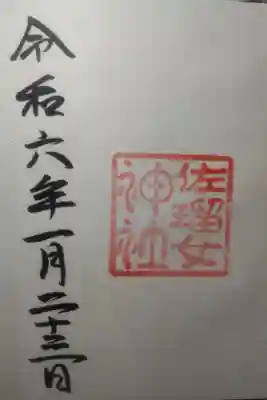 佐瑠女
神社
令和六年一月二十三日